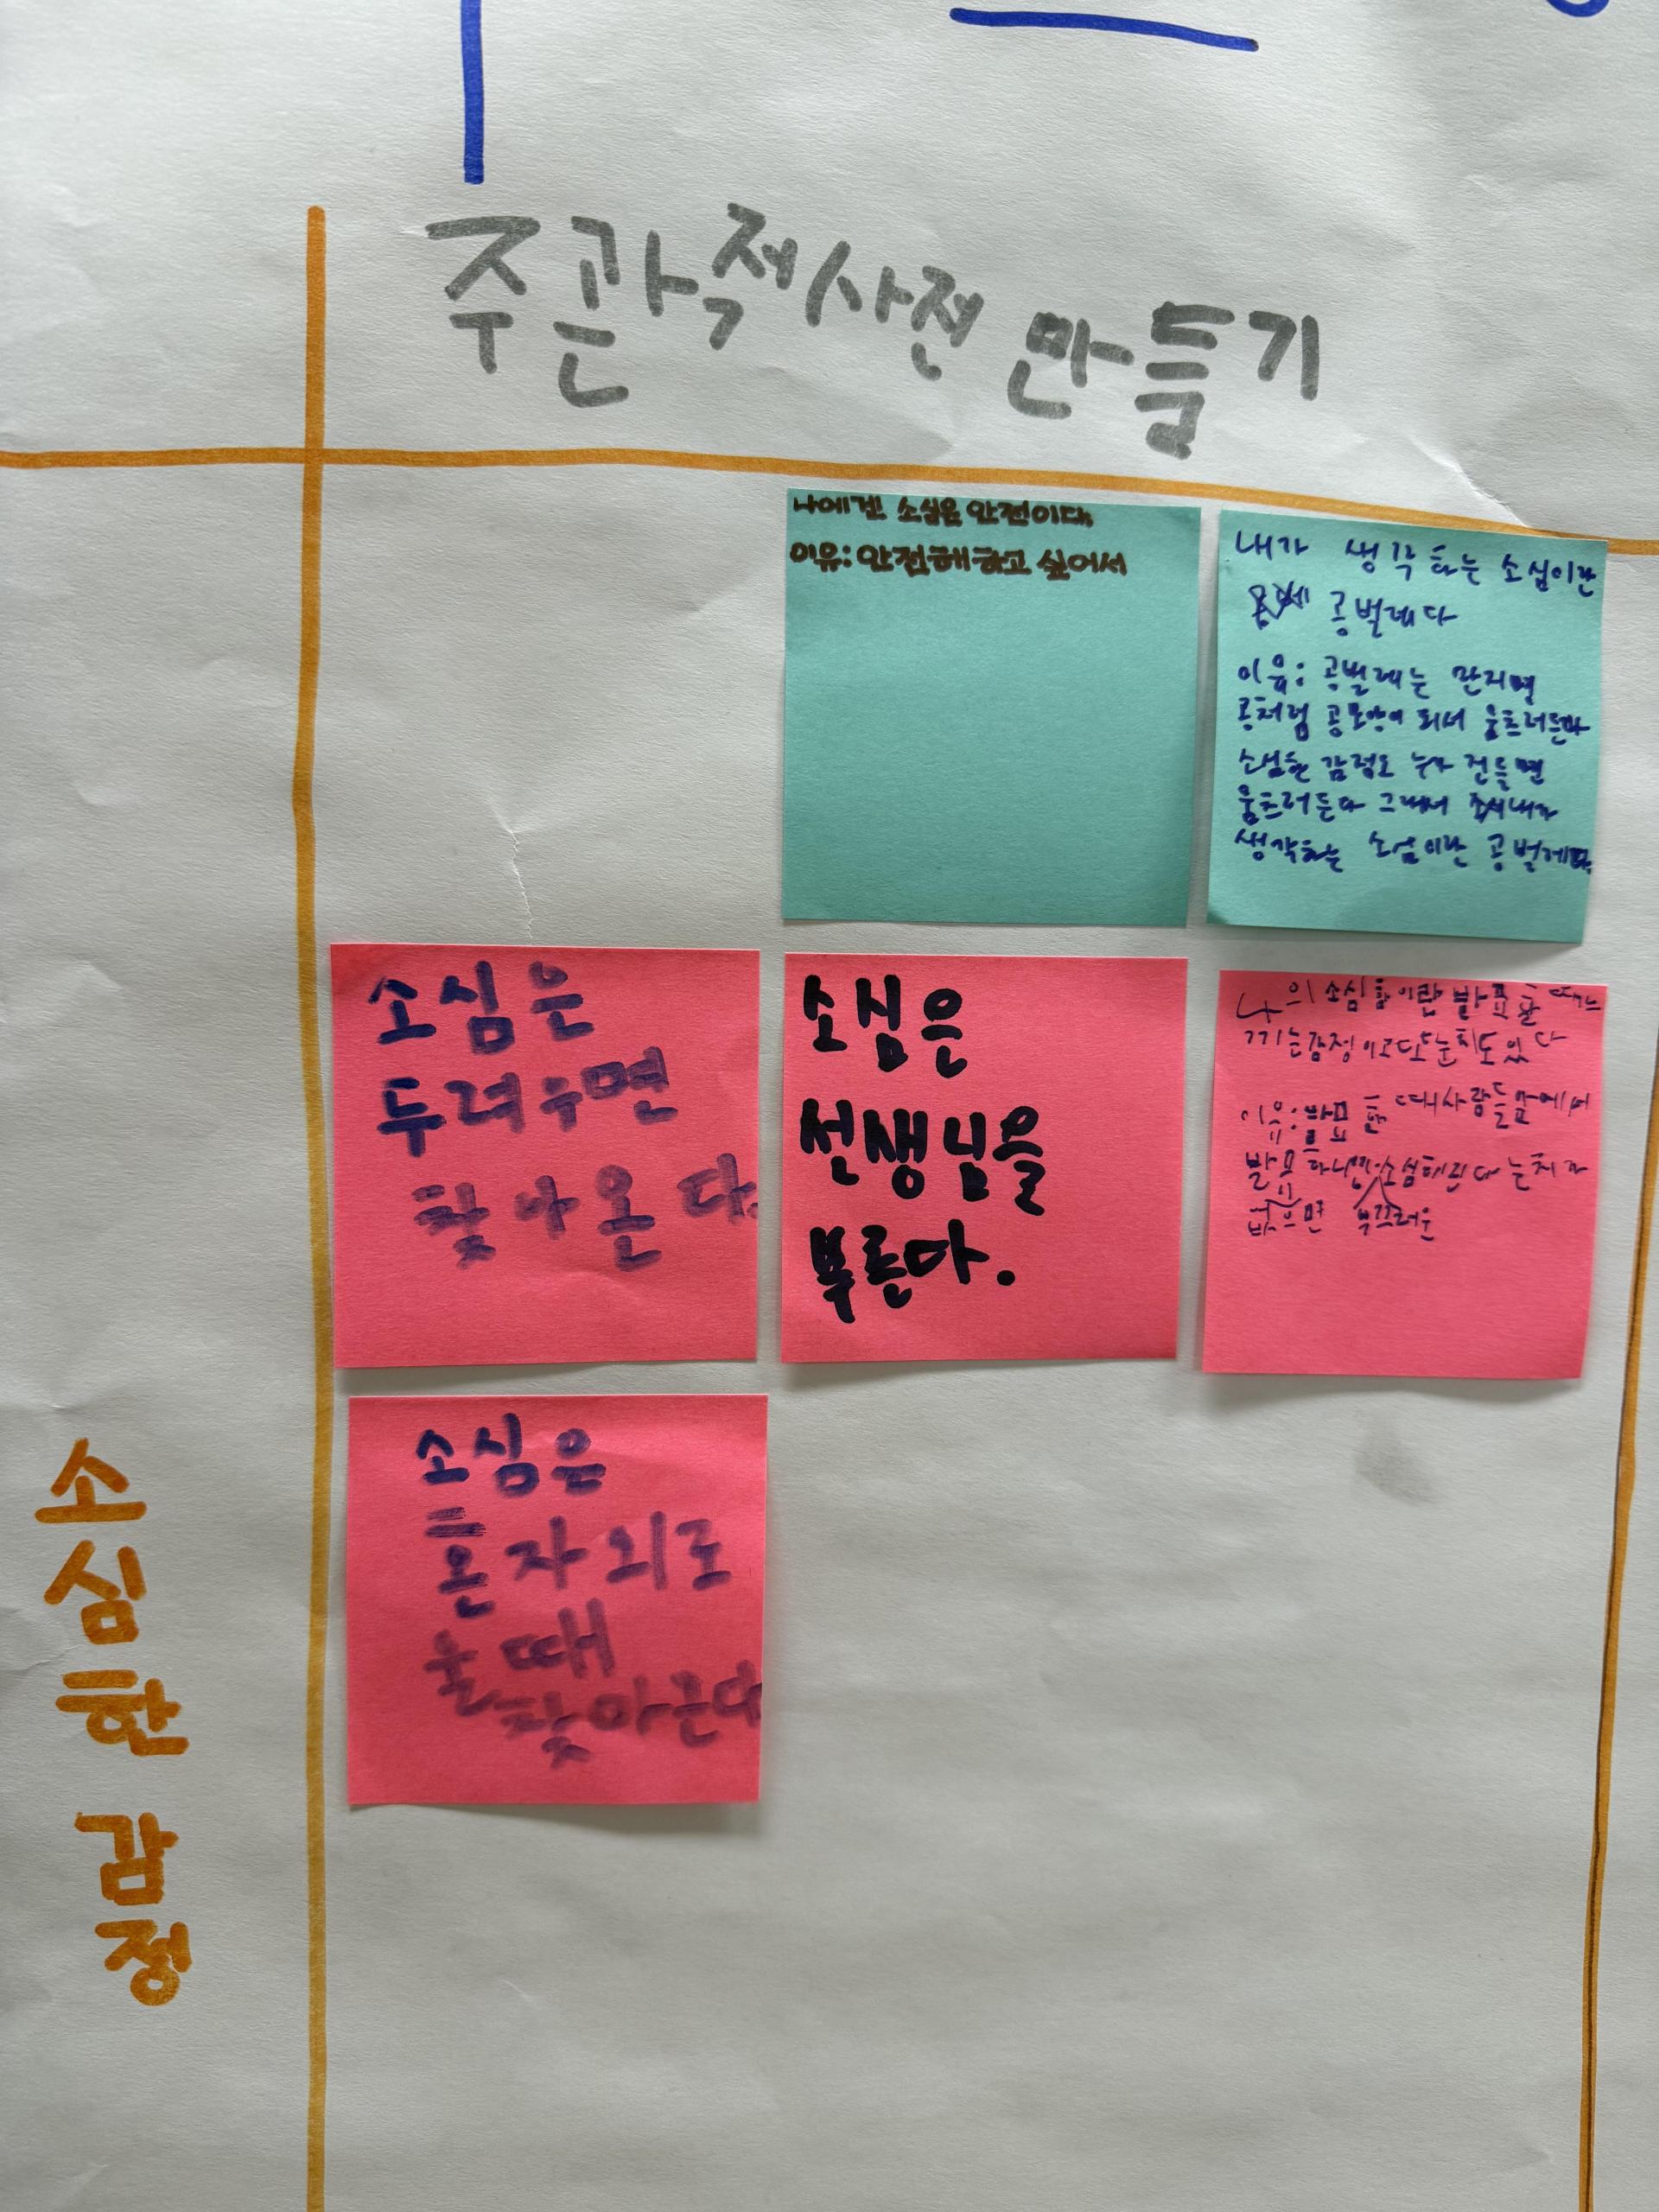 주관적사전 만들기
나에겐 소심은 안전이다.
이유: 안전해하고 싶어서
내가 생각하는 소심이란
공벌레다
이유: 공벌레는 만지면
콩처럼 공모양이 되서 움츠러든다
소심한 감정도 누가 건들면
움츠러든다 그래서 내가
생각하는 소심이란 공벌레다.
소심은
두려우면
찾아온다.
소심은
선생님을
부른다.
나의 소심함이란 발표할 때 느
끼는감정이고또눈치도있다
이유: 발표할 때사람들앞에서
발표하면 소심해진다 눈치가
없으면 부끄러운
소심은
혼자 외로
울 때
찾아온다
소심한 감정